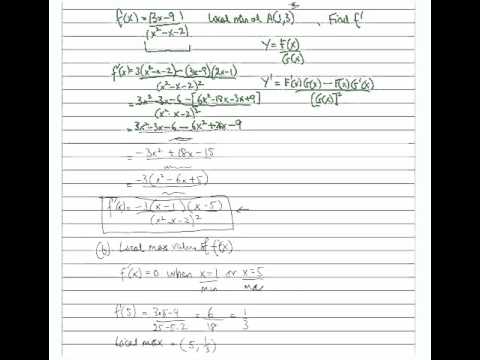 f(x) = (3x-9) / (x²-x-2) Local min at A(1,3) , Find f'
y = F(x) / G(x)
f'(x) = 3(x²-x-2) - (3x-9)(2x-1) / (x²-x-2)²
y' = F'(x)G(x) - F(x)G'(x) / [G(x)]²
= 3x²-3x-6-[6x²-18x-3x+9] / (x²-x-2)²
= 3x²-3x-6-6x²+21x-9
= -3x²+18x-15
= -3(x²-6x+5)
f'(x) = -3(x-1)(x-5) / (x²-x-2)²
(b) Local max value of f(x)
f'(x)=0 when x=1 or x=5
min max
f(5) = 3×5-9 / 25-5-2 = 6 / 18 = 1/3
Local max = (5, 1/3)